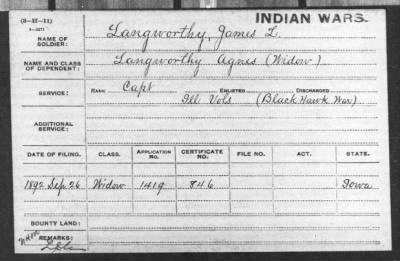 (3-H-11) INDIAN WARS.
NAME OF SOLDIER: Langworthy, James L.
NAME AND CLASS OF DEPENDENT: Langworthy Agnes (Widow)
SERVICE: RANK Capt ENLISTED DISCHARGED
Ill Vols (Black Hawk War)
ADDITIONAL SERVICE:
DATE OF FILING. CLASS. APPLICATION No. CERTIFICATE No. FILE NO. ACT. STATE.
1892 Sep 26 Widow 1419 846 Iowa
BOUNTY LAND:
REMARKS: